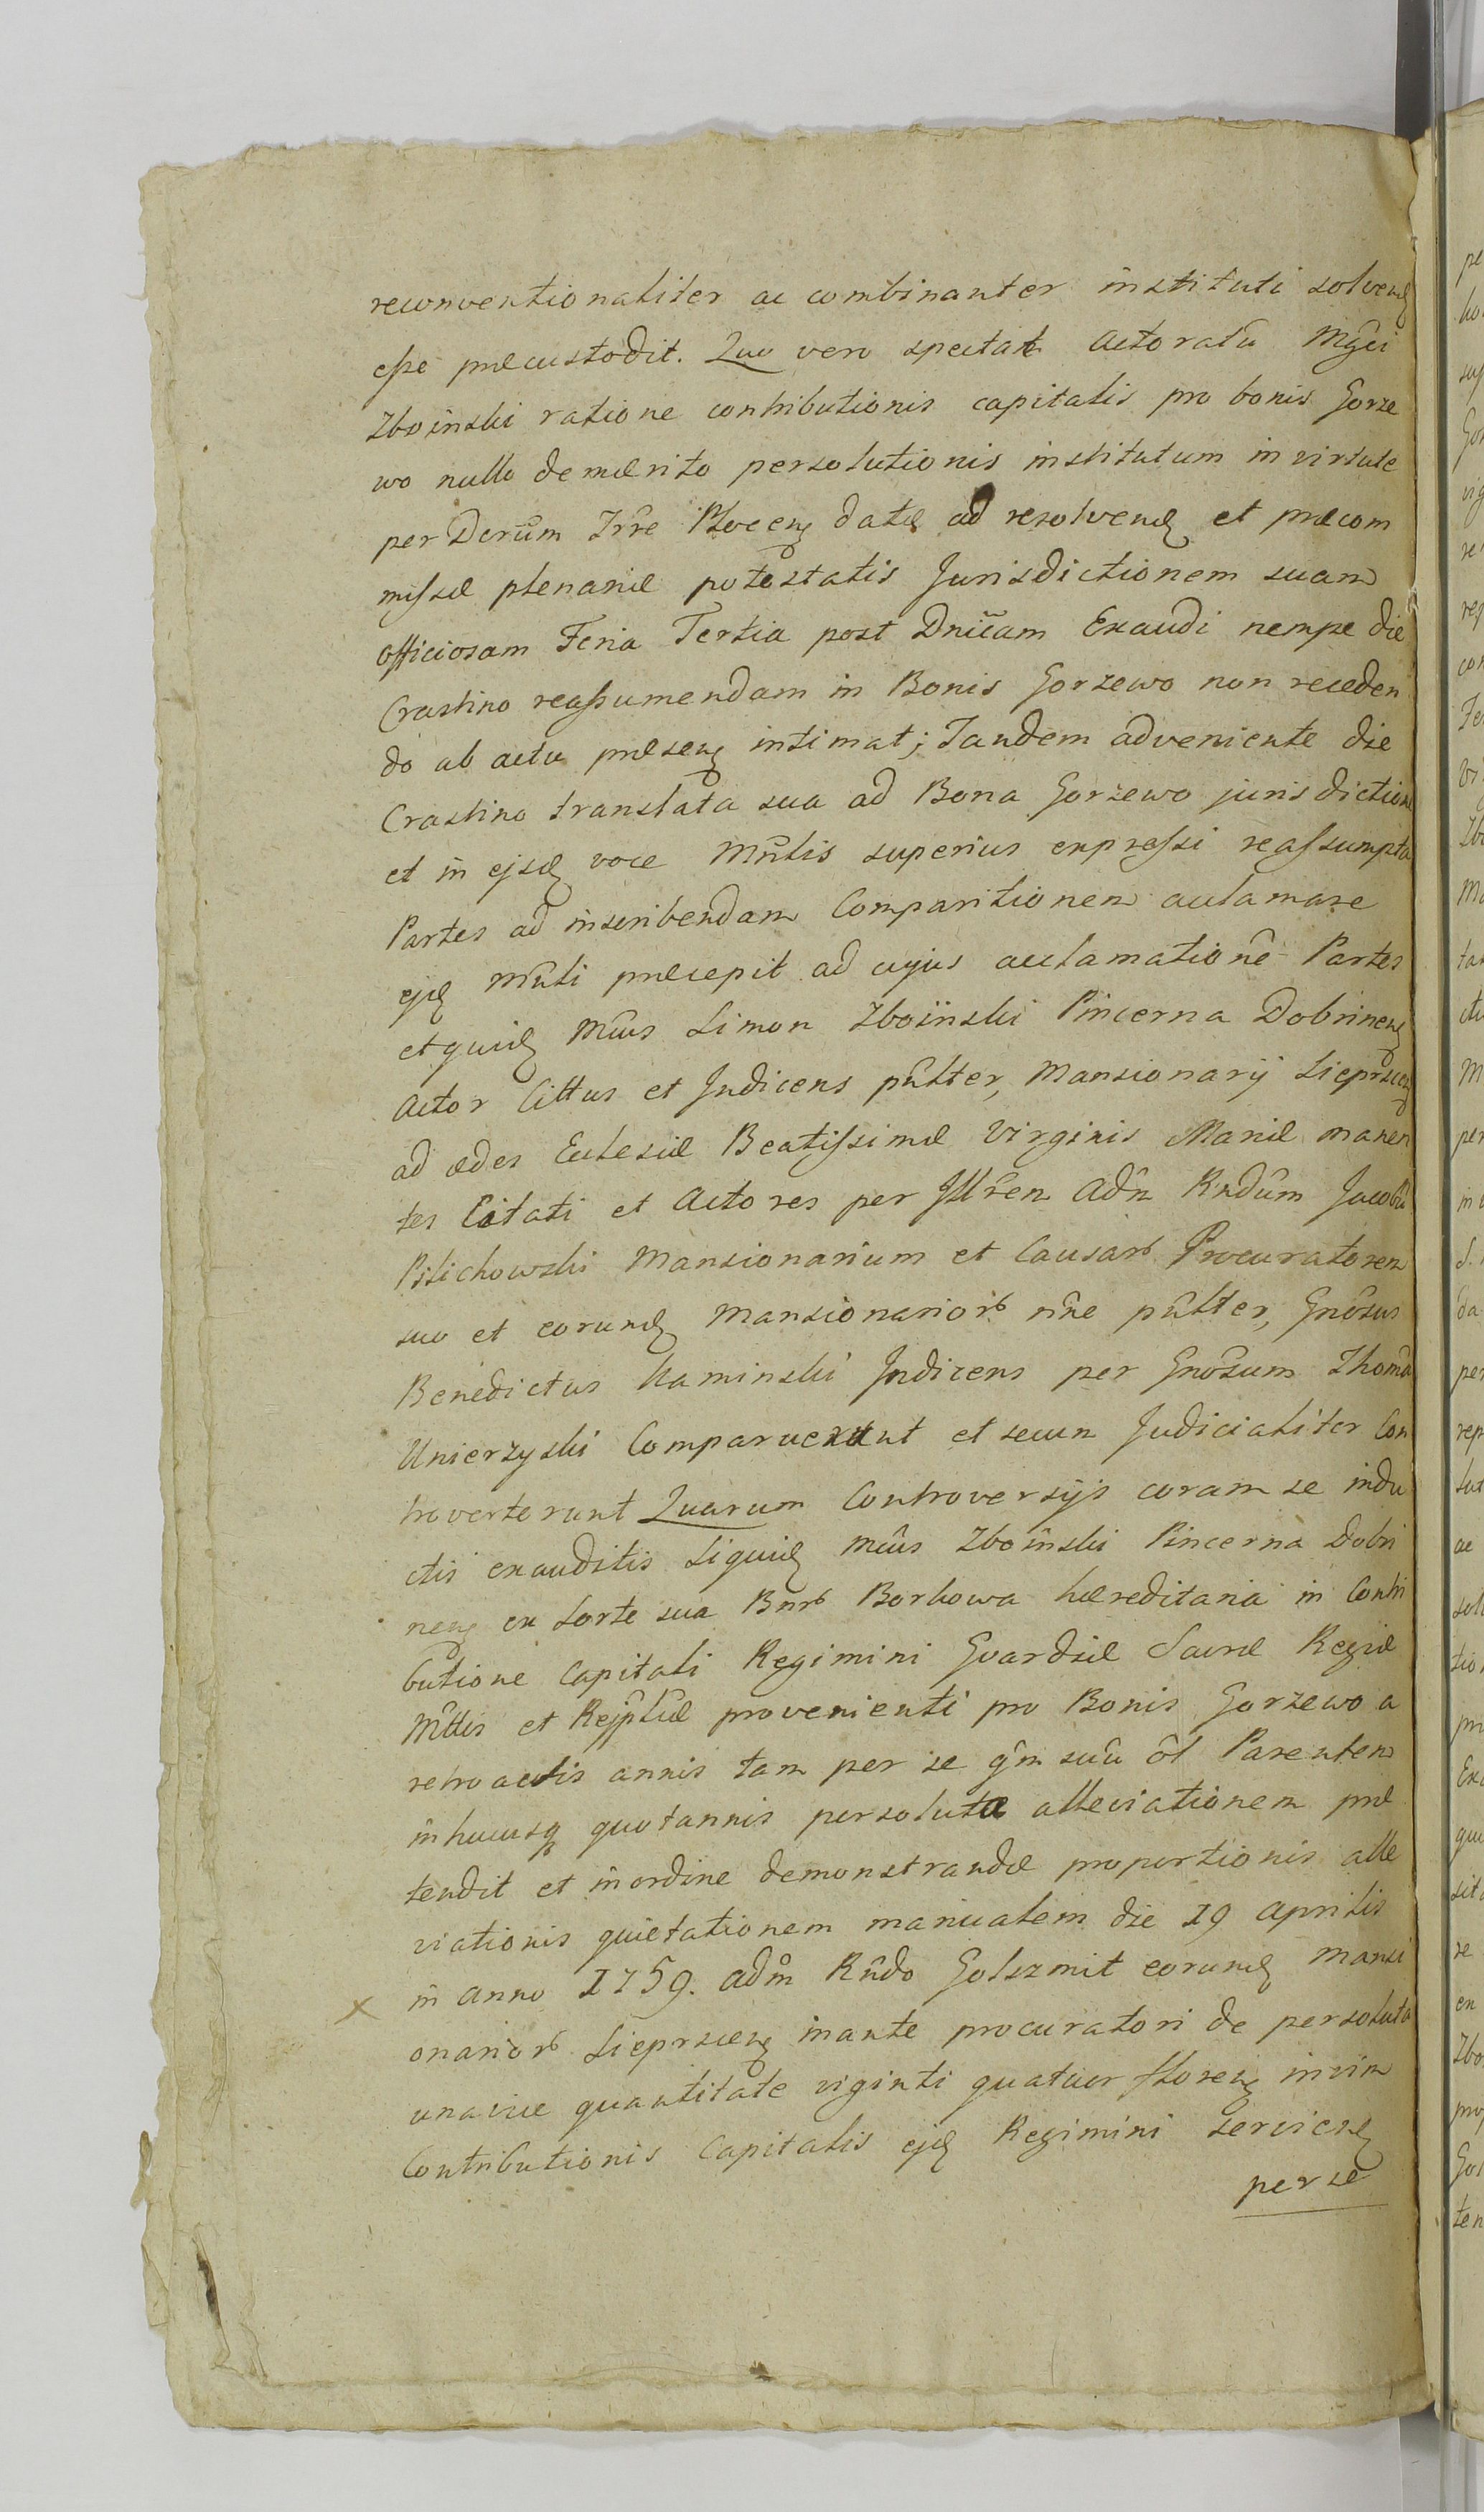 reconventionaliter ac combinanter instituti solvend
esse præcustodit. Quo vero spectat Actoratũ Mgci
Zboinski ratione contributionis capitalis pro bonis Gorze
wo nullo demærito persolutionis institutum in virtute
per Decrũm Plocen datæ ad resolvend et præcom
missæ plenariæ potestatis Jurisdictionem suam
officiosam Feria Tertia post Dnicam Exaudi nempe die
Crastino reassumendam in Bonis Gorzewo non receden
do ab actu præsen intimat; Tandem adveniente die
Crastino translata sua ad Bona Gorzewo jurisdictione
et in ejsd voce Mrũlis superius expressi reassumpta
Partes ad inscribendam Comparitionem acclamare
ejd Mrũli præcepit ad cujus acclamationẽ Partes
et quid Mcus Simon Zboiński Pincerna Dobrinen
Actor Cittus et Judicens pũlter, Mansionarij Sieprscen
ad ædes Ecclesiæ Beatissimæ Virginis Mariæ manen
tes Citati et Actores per Jllrem Adm Rndum Jacobũ
Pilichowski Mansionarium et Causarum Procuratorem
suo et eorund Mansionariorum nñe pũlter, Gnosus
Benedictus Kaminski Judicens per Gnosum Thomã
Unierzyski Comparuerunt et secum Judicialiter Con
troverterunt Quarum Controversijs coram se indu
ctis exauditis Siquid Mcus Zboiński Pincerna Dobri
nen ex sorte sua Bnrum Borkowa hæreditaria in Contri
butione Capitali Regimini Gvardiæ Sacræ Regiæ
Mttis et Rejplcæ provenienti pro Bonis Gorzewo a
retroactis annis tam per se qm suũ ol Parentem
in hucusq quotannis persoluta alleviationem præ
tendit et in ordine demonstrandæ proportionis alle
viationis quietationem manualem die 19 Aprilis
in Anno 1759. Adm Rndo Golszmit eorund Mansi
onariorum Sieprscen in ante procuratori de persoluta
unaive quantitate viginti quatuor floren in vim
Contributionis Capitalis ejd Regimini Serviend
per se